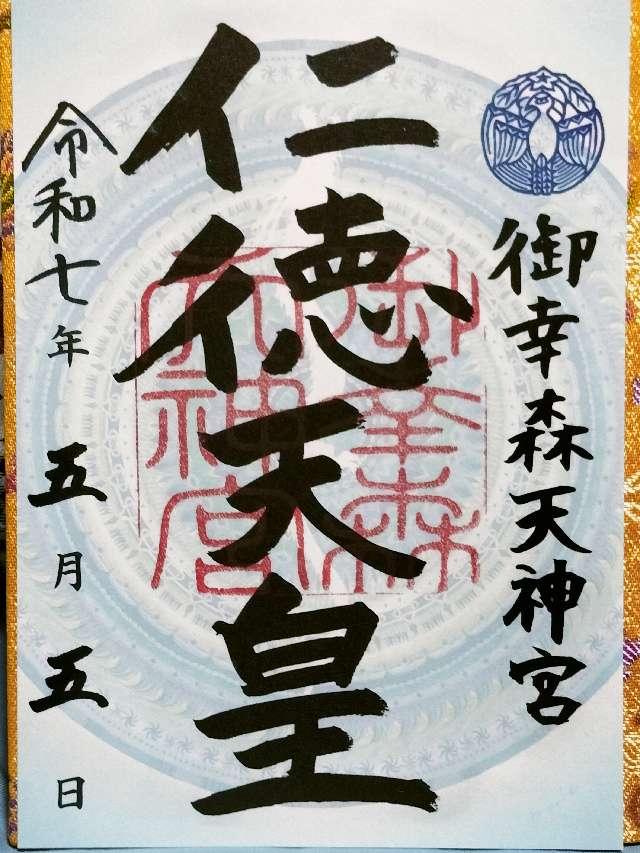 御幸森天神宮
仁徳天皇
御幸森
天神宮
令和七年五月五日